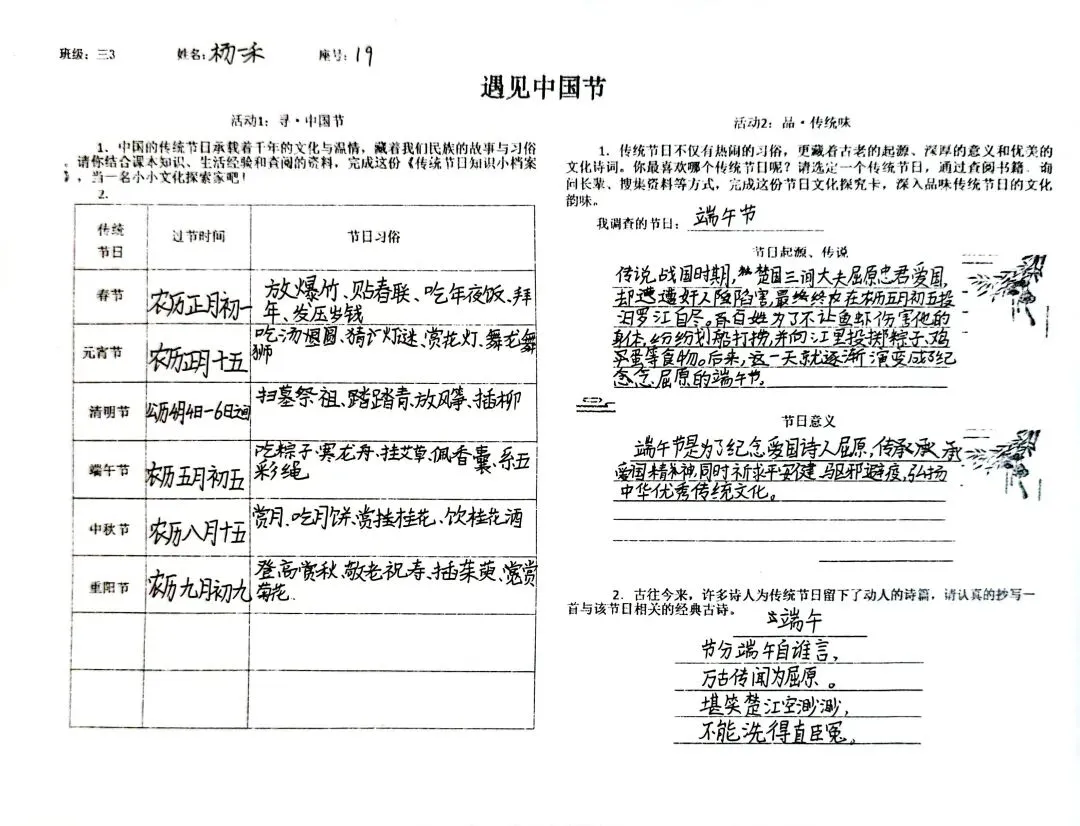 班级：三3 姓名：杨一禾 座号：19
遇见中国节
活动1：寻·中国节
1. 中国的传统节日承载着千年的文化与温情，藏着我们民族的故事与习俗
，请你结合课本知识、生活经验和查阅的资料，完成这份《传统节日知识小档案
》，当一名小小文化探索家吧！
2.
传统
节日
过节时间
节日习俗
春节
农历正月初一
放爆竹、贴春联、吃年夜饭、拜
年、发压岁钱
元宵节
农历正月十五
吃汤圆、猜灯谜、赏花灯、舞龙舞
狮
清明节
公历4月4日-6日之间
扫墓祭祖、踏青、放风筝、插柳
端午节
农历五月初五
吃粽子、赛龙舟、挂艾草、佩香囊、系五
彩绳
中秋节
农历八月十五
赏月、吃月饼、赏桂花、饮桂花酒
重阳节
农历九月初九
登高赏秋、敬老祝寿、插茱萸、赏
菊花
活动2：品·传统味
1. 传统节日不仅有热闹的习俗，更藏着古老的起源、深厚的意义和优美的
文化诗词。你最喜欢哪个传统节日呢？请选定一个传统节日，通过查阅书籍、询
问长辈、搜集资料等方式，完成这份节日文化探究卡，深入品味传统节日的文化
韵味。
我调查的节日：端午节
节日起源、传说
传说，战国时期，楚国三闾大夫屈原忠君爱国，
却遭奸人陷害，最终在农历五月初五投
汨罗江自尽。百姓为了不让鱼虾伤害他的
身体，纷纷划船打捞，并向江里投掷粽子、鸡
蛋等食物。后来，这一天就逐渐演变成了纪
念屈原的端午节。
节日意义
端午节是为了纪念爱国诗人屈原，传承
爱国精神，同时祈求平安健，驱邪避疫，弘扬
中华优秀传统文化。
2. 古往今来，许多诗人为传统节日留下了动人的诗篇，请认真的抄写一
首与该节日相关的经典古诗。
端午
节分端午自谁言，
万古传闻为屈原。
堪笑楚江空渺渺，
不能洗得直臣冤。